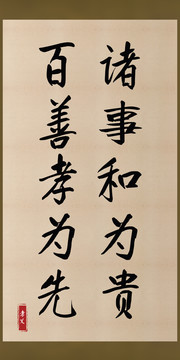 诸事和为贵
百善孝为先